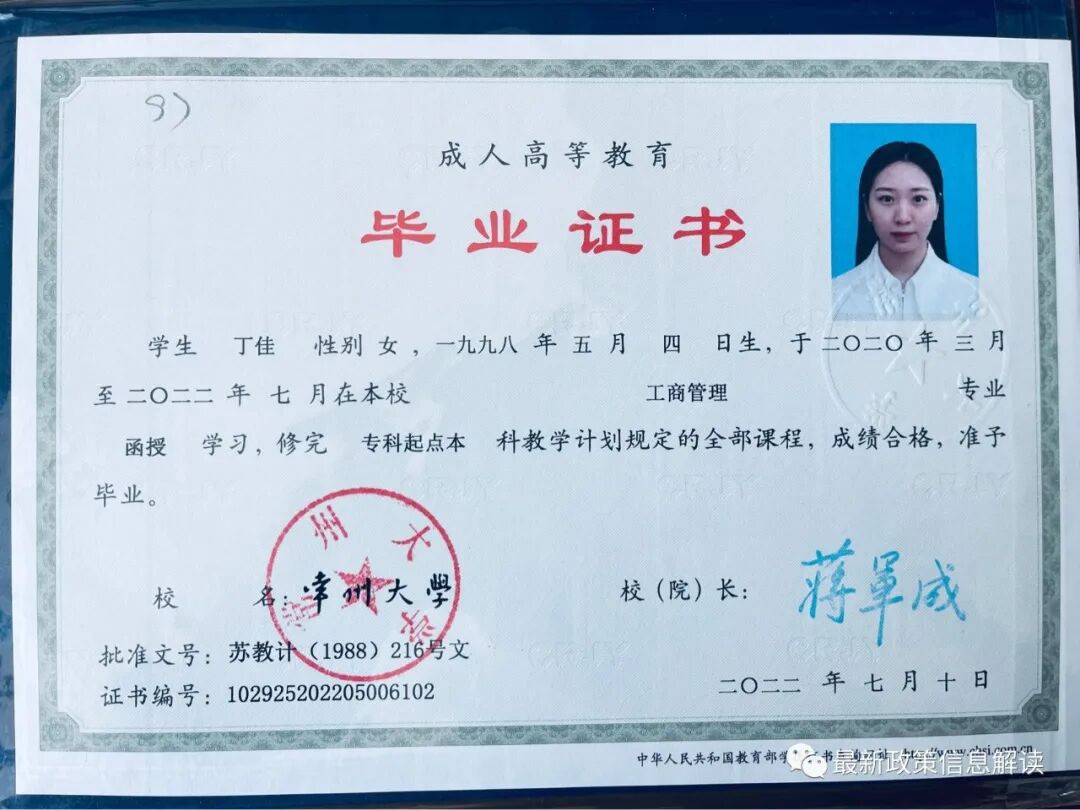 成人高等教育
毕业证书
学生 丁佳 性别 女，一九九八 年 五 月 四 日生，于 二〇二〇 年 三 月
至 二〇二二 年 七 月在本校 工商管理 专业
函授 学习，修完 专科起点本 科教学计划规定的全部课程，成绩合格，准予
毕业。
州大
校 名：常州大學
校（院）长：蒋軍成
批准文号：苏教计（1988）216号文
证书编号：102925202205006102
二〇二二 年 七 月 十 日
中华人民共和国教育部学 证书查询网址：http://www.chsi.com.cn
最新政策信息解读